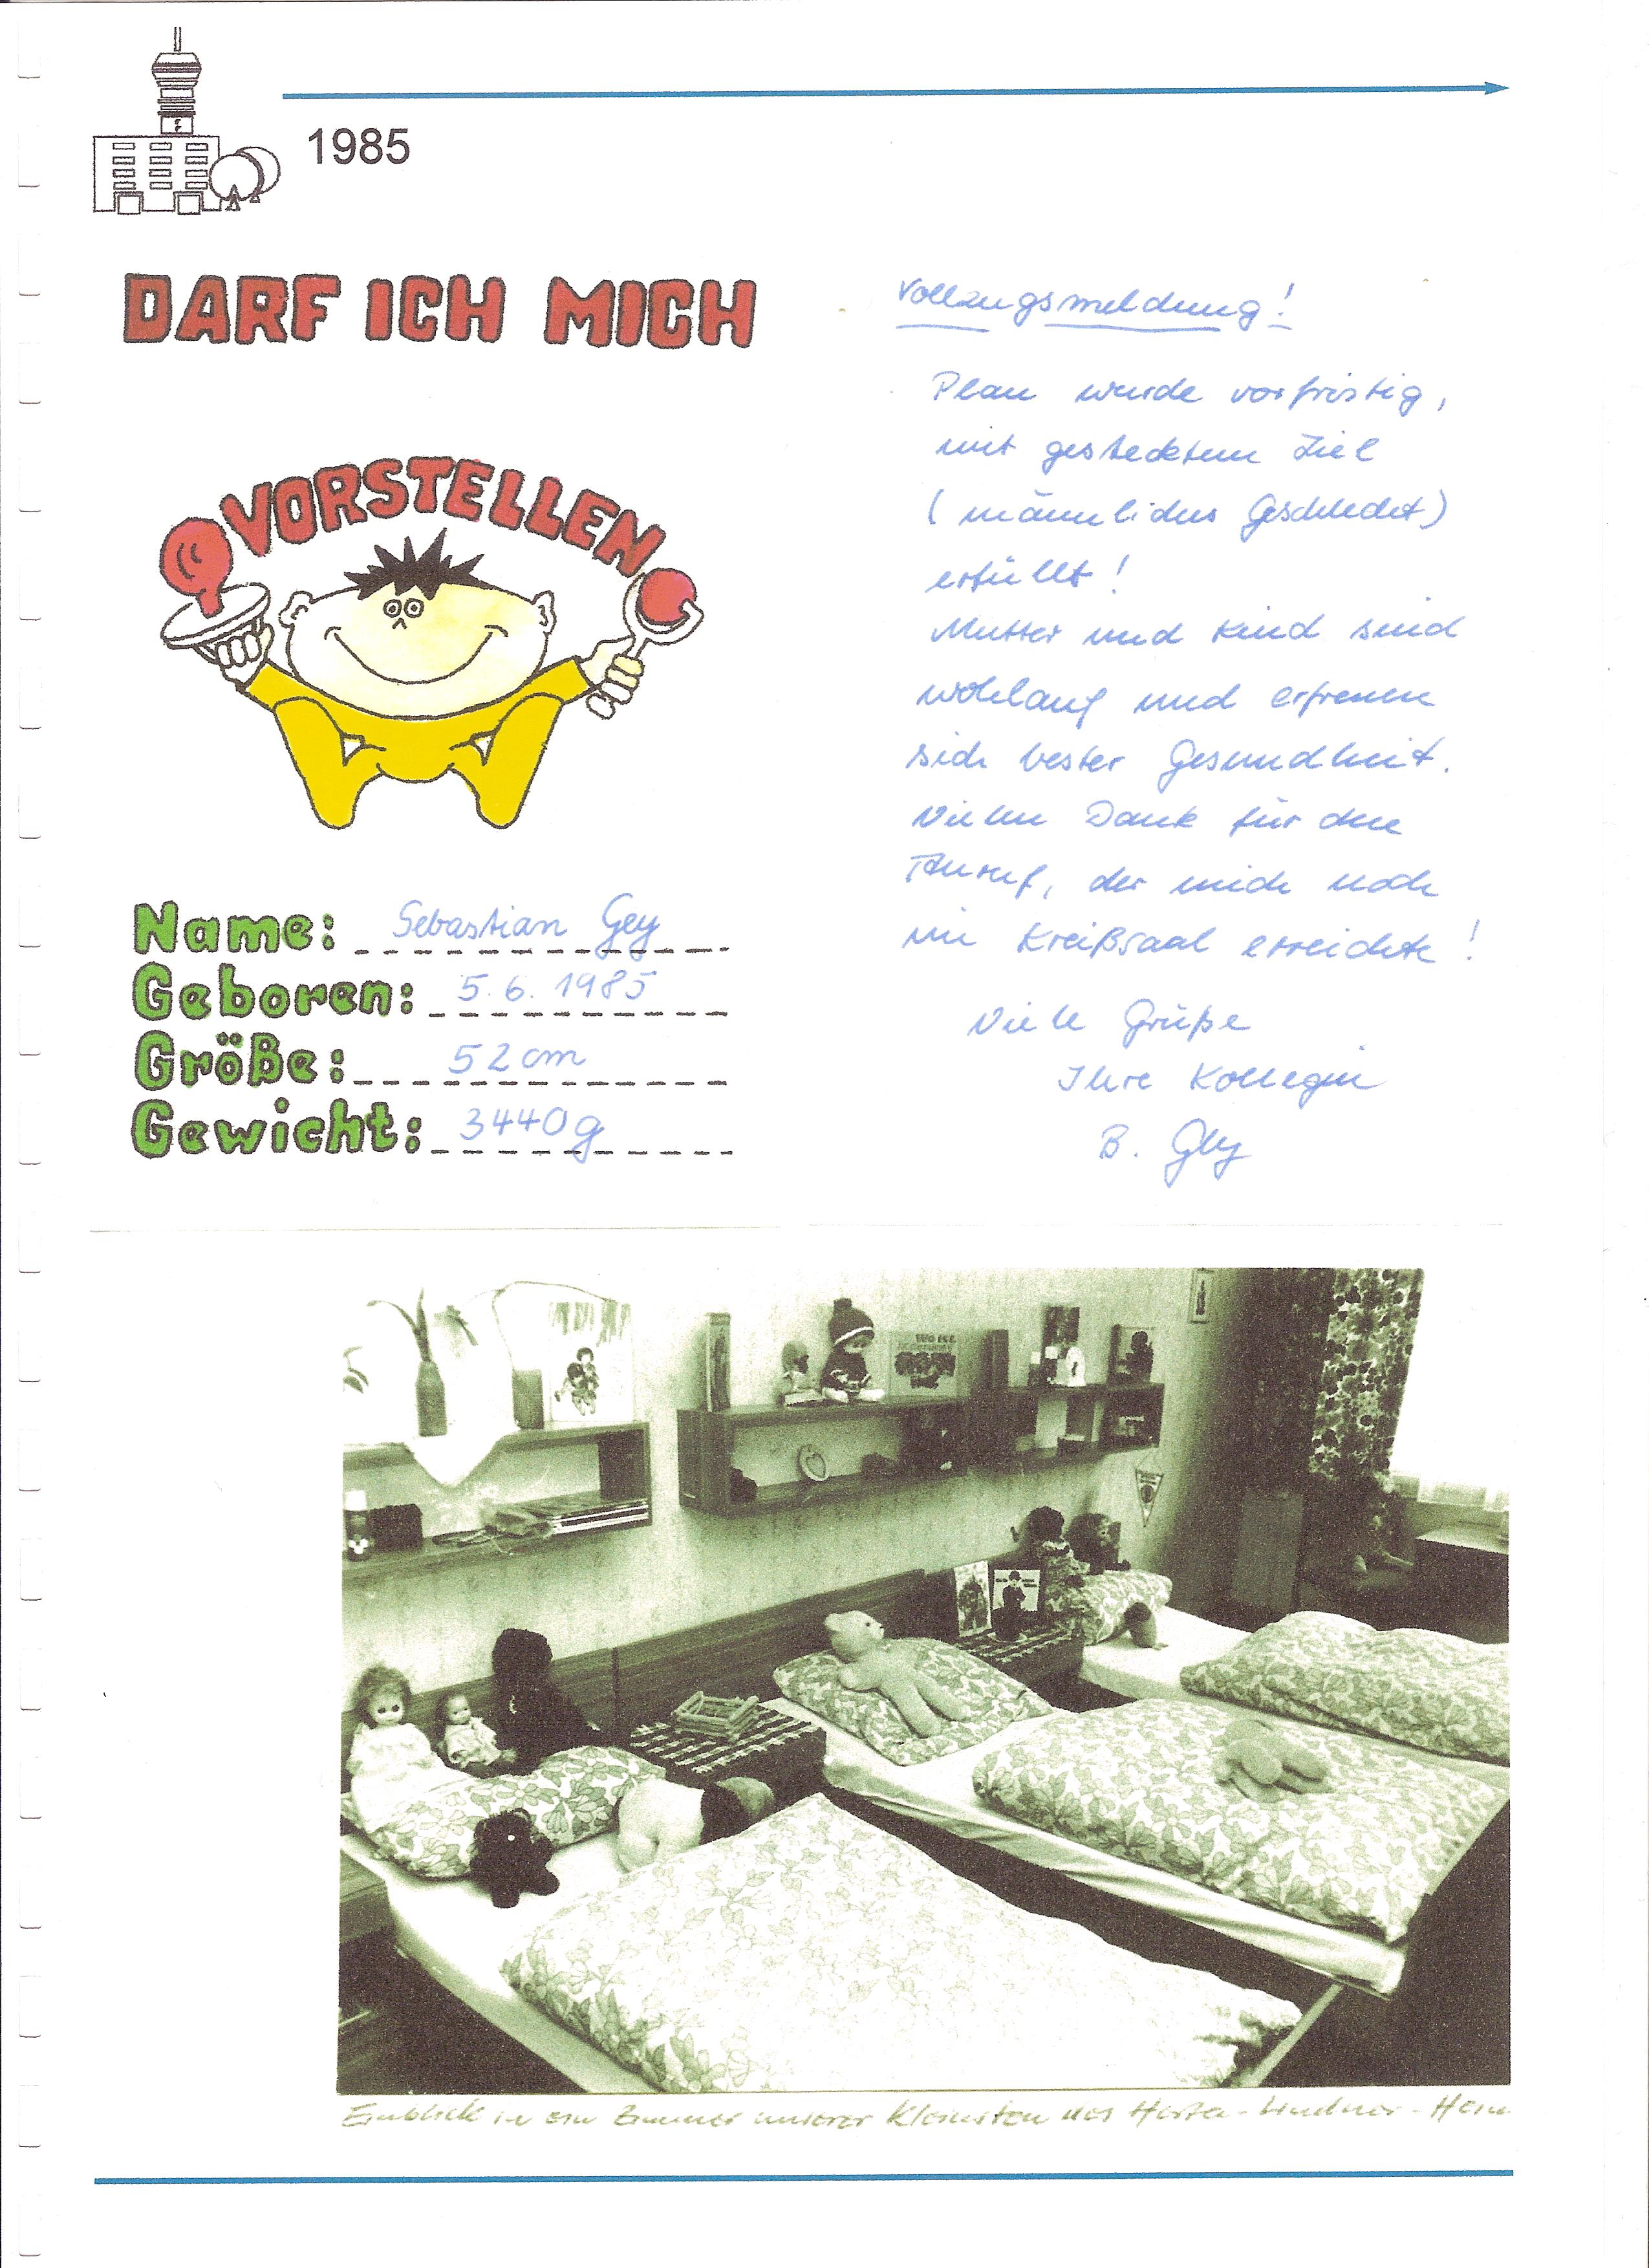 1985
DARF ICH MICH
VORSTELLEN
Name: Sebastian Gey
Geboren: 5.6.1985
Größe: 52cm
Gewicht: 3440g
Vollzugsmeldung!
Plan wurde vorfristig,
mit gestecktem Ziel
(männliches Geschlecht)
erfüllt!
Mutter und Kind sind
wohlauf und erfreuen
sich bester Gesundheit.
Vielen Dank für den
Anruf, der mich noch
im Kreißsaal erreichte!
Viele Grüße
Ihre Kollegin
B. Gey
WO IST
Einblick in ein Zimmer unserer Kleinsten des Herta-Lindner-Heim